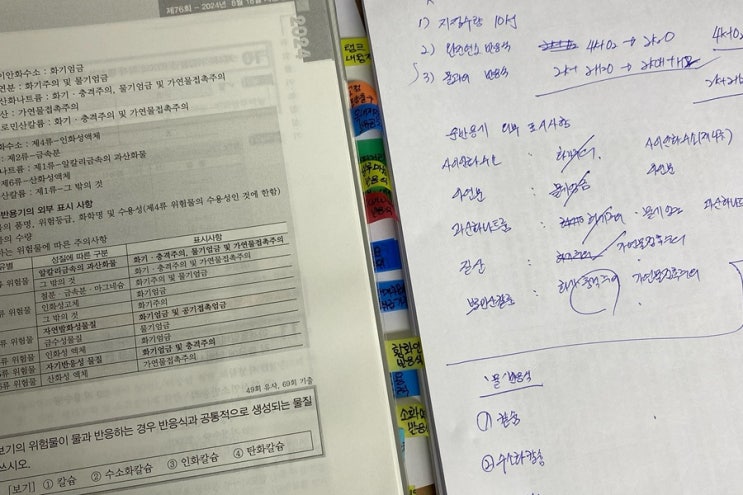 제76회 - 2024년 8월 18일
2024
이안화수소 : 화기엄금
연분 : 화기주의 및 물기엄금
산화나트륨 : 화기·충격주의, 물기엄금 및 가연물접촉주의
산 : 가연물접촉주의
로민산칼륨 : 화기·충격주의 및 가연물접촉주의
화수소 : 제4류-인화성액체
: 제2류-금속분
나트륨 : 제1류-알칼리금속의 과산화물
제6류-산화성액체
산칼륨 : 제1류-그 밖의 것
반용기의 외부 표시 사항
의 품명, 위험등급, 화학명 및 수용성(제4류 위험물의 수용성인 것에 한함)
의 수량
하는 위험물에 따른 주의사항
유별 성질에 따른 구분 표시사항
류 위험물 알칼리금속의 과산화물 화기·충격주의, 물기엄금 및 가연물접촉주의
그 밖의 것 화기·충격주의 및 가연물접촉주의
류 위험물 철분·금속분·마그네슘 화기주의 및 물기엄금
인화성고체 화기엄금
그 밖의 것 화기주의
류 위험물 자연발화성물질 화기엄금 및 공기접촉엄금
금수성물질 물기엄금
류 위험물 인화성 액체 화기엄금
류 위험물 자기반응성 물질 화기엄금 및 충격주의
류 위험물 산화성 액체 가연물접촉주의
49회 유사, 69회 기출
보기의 위험물이 물과 반응하는 경우 반응식과 공통적으로 생성되는 물질
쓰시오.
[보기] ① 칼슘 ② 수소화칼슘 ③ 인화칼슘 ④ 탄화칼슘
탱크
내용적
반응식
소화
반응식
1) 지정수량 10kg
2) 완전연소 반응식 4K+O₂ → 2K₂O
3) 물과의 반응식 2K+2H₂O → 2KOH+H₂
4K+O₂
운반용기 외부 표시사항
아연분 : 물기엄금 아연분
과산화나트륨 : 화기주의 · 물기엄금 과산화나트
질산 : 화기주의 가연물접촉주의
브로민산칼륨 : 화기·충격주의 가연물접촉주의
물 반응식
① 칼슘
② 수소화칼슘